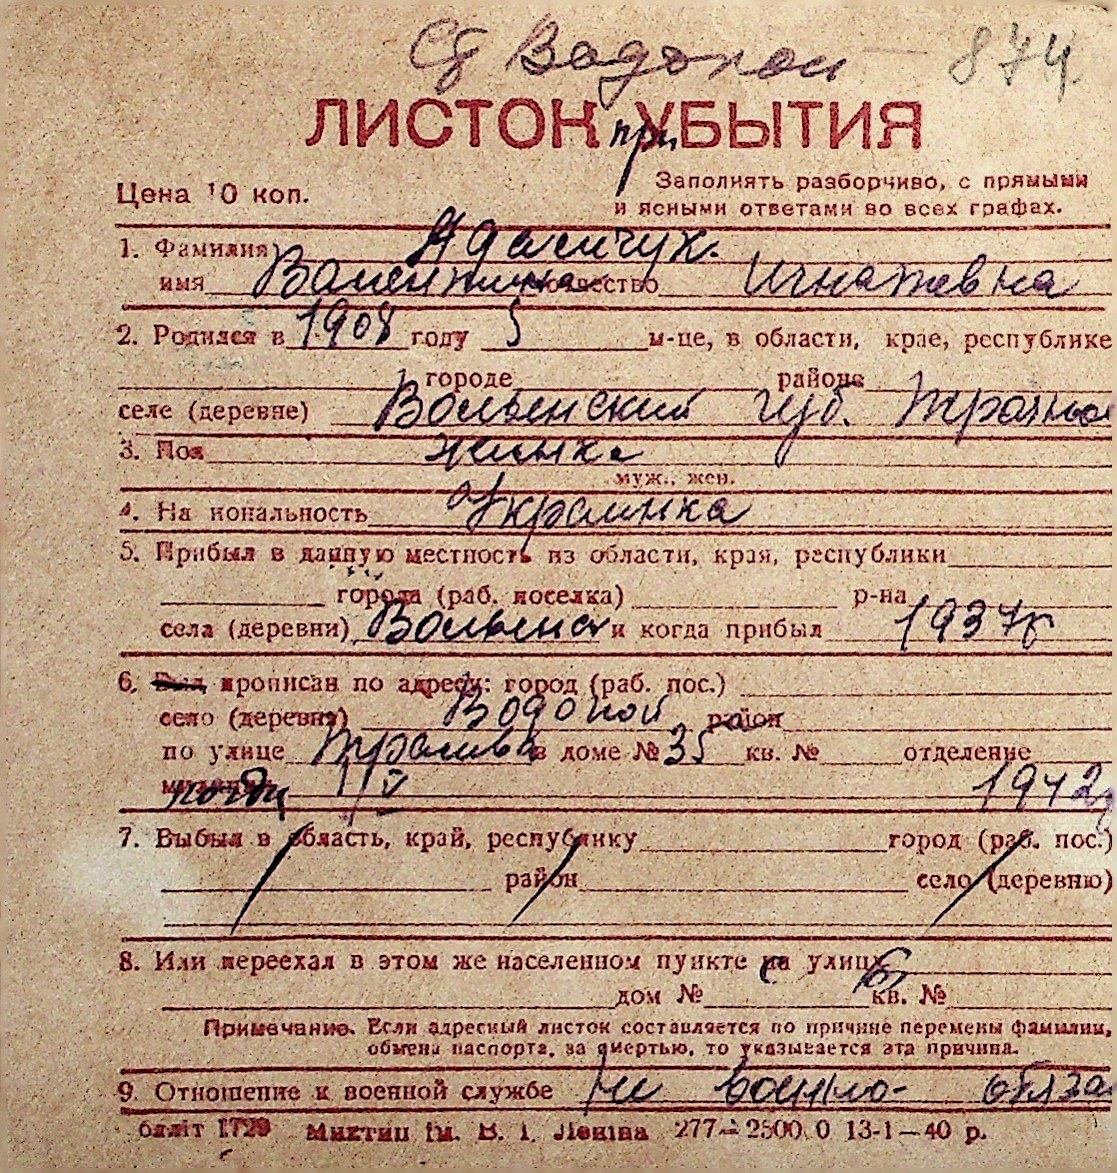 Водопой 874
ЛИСТОК при УБЫТИЯ
Цена 10 коп. Заполнять разборчиво, с прямыми
и ясными ответами во всех графах.
1. Фамилия Адамчук.
имя Валентина отчество Игнатевна
2. Родился в 1908 году 5 м-це, в области, крае, республике
городе районе
селе (деревне) Волынский губ.
3. Пол женска
муж., жен.
4. На иональность Украинка
5. Прибыл в данную местность из области, края, республики
города (раб. поселка) р-на
села (деревни) и когда прибыл 1937г
6. Был прописан по адресу: город (раб. пос.)
село (деревня) Водопой район
по улице в доме № 35 кв. № отделение
1/V 1942г
7. Выбыл в область, край, республику город (раб. пос.)
район село (деревню)
8. Или переехал в этом же населенном пункте на улицу
дом № кв. №
Примечание. Если адресный листок составляется по причине перемены фамилии,
обмена паспорта, за смертью, то указывается эта причина.
9. Отношение к военной службе не военно- обяза
бліт 1729 Миктип ім. В. І. Леніна 277—2500.0 13-1—40 р.